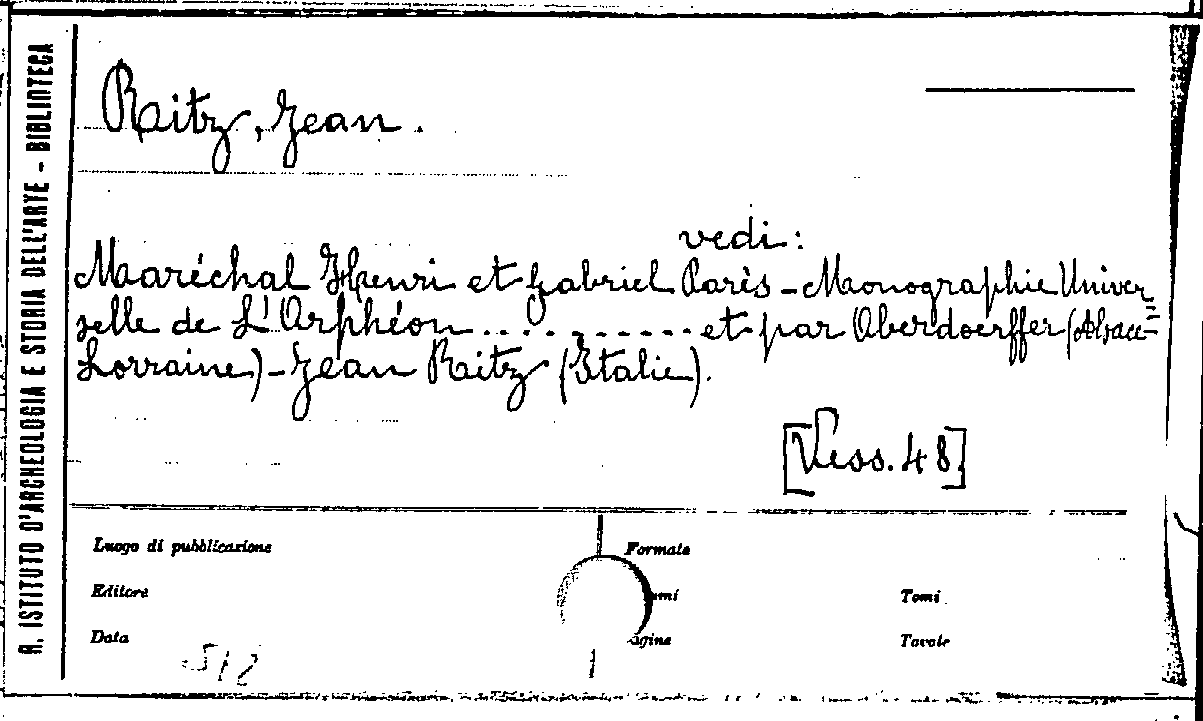 R. ISTITUTO D'ARCHEOLOGIA E STORIA DELL'ARTE - BIBLIOTECA
Ritz, Jean.
vedi:
Maréchal Henri et Gabriel Parès - Monographie Univer
selle de L'Orphéon ........... et par Oberdoerffer (Alsace-
Lorraine) - Jean Ritz (Italie).
[Vess. 48]
Luogo di pubblicazione
Formato
Editore
Tomi
Data
Tavole
512